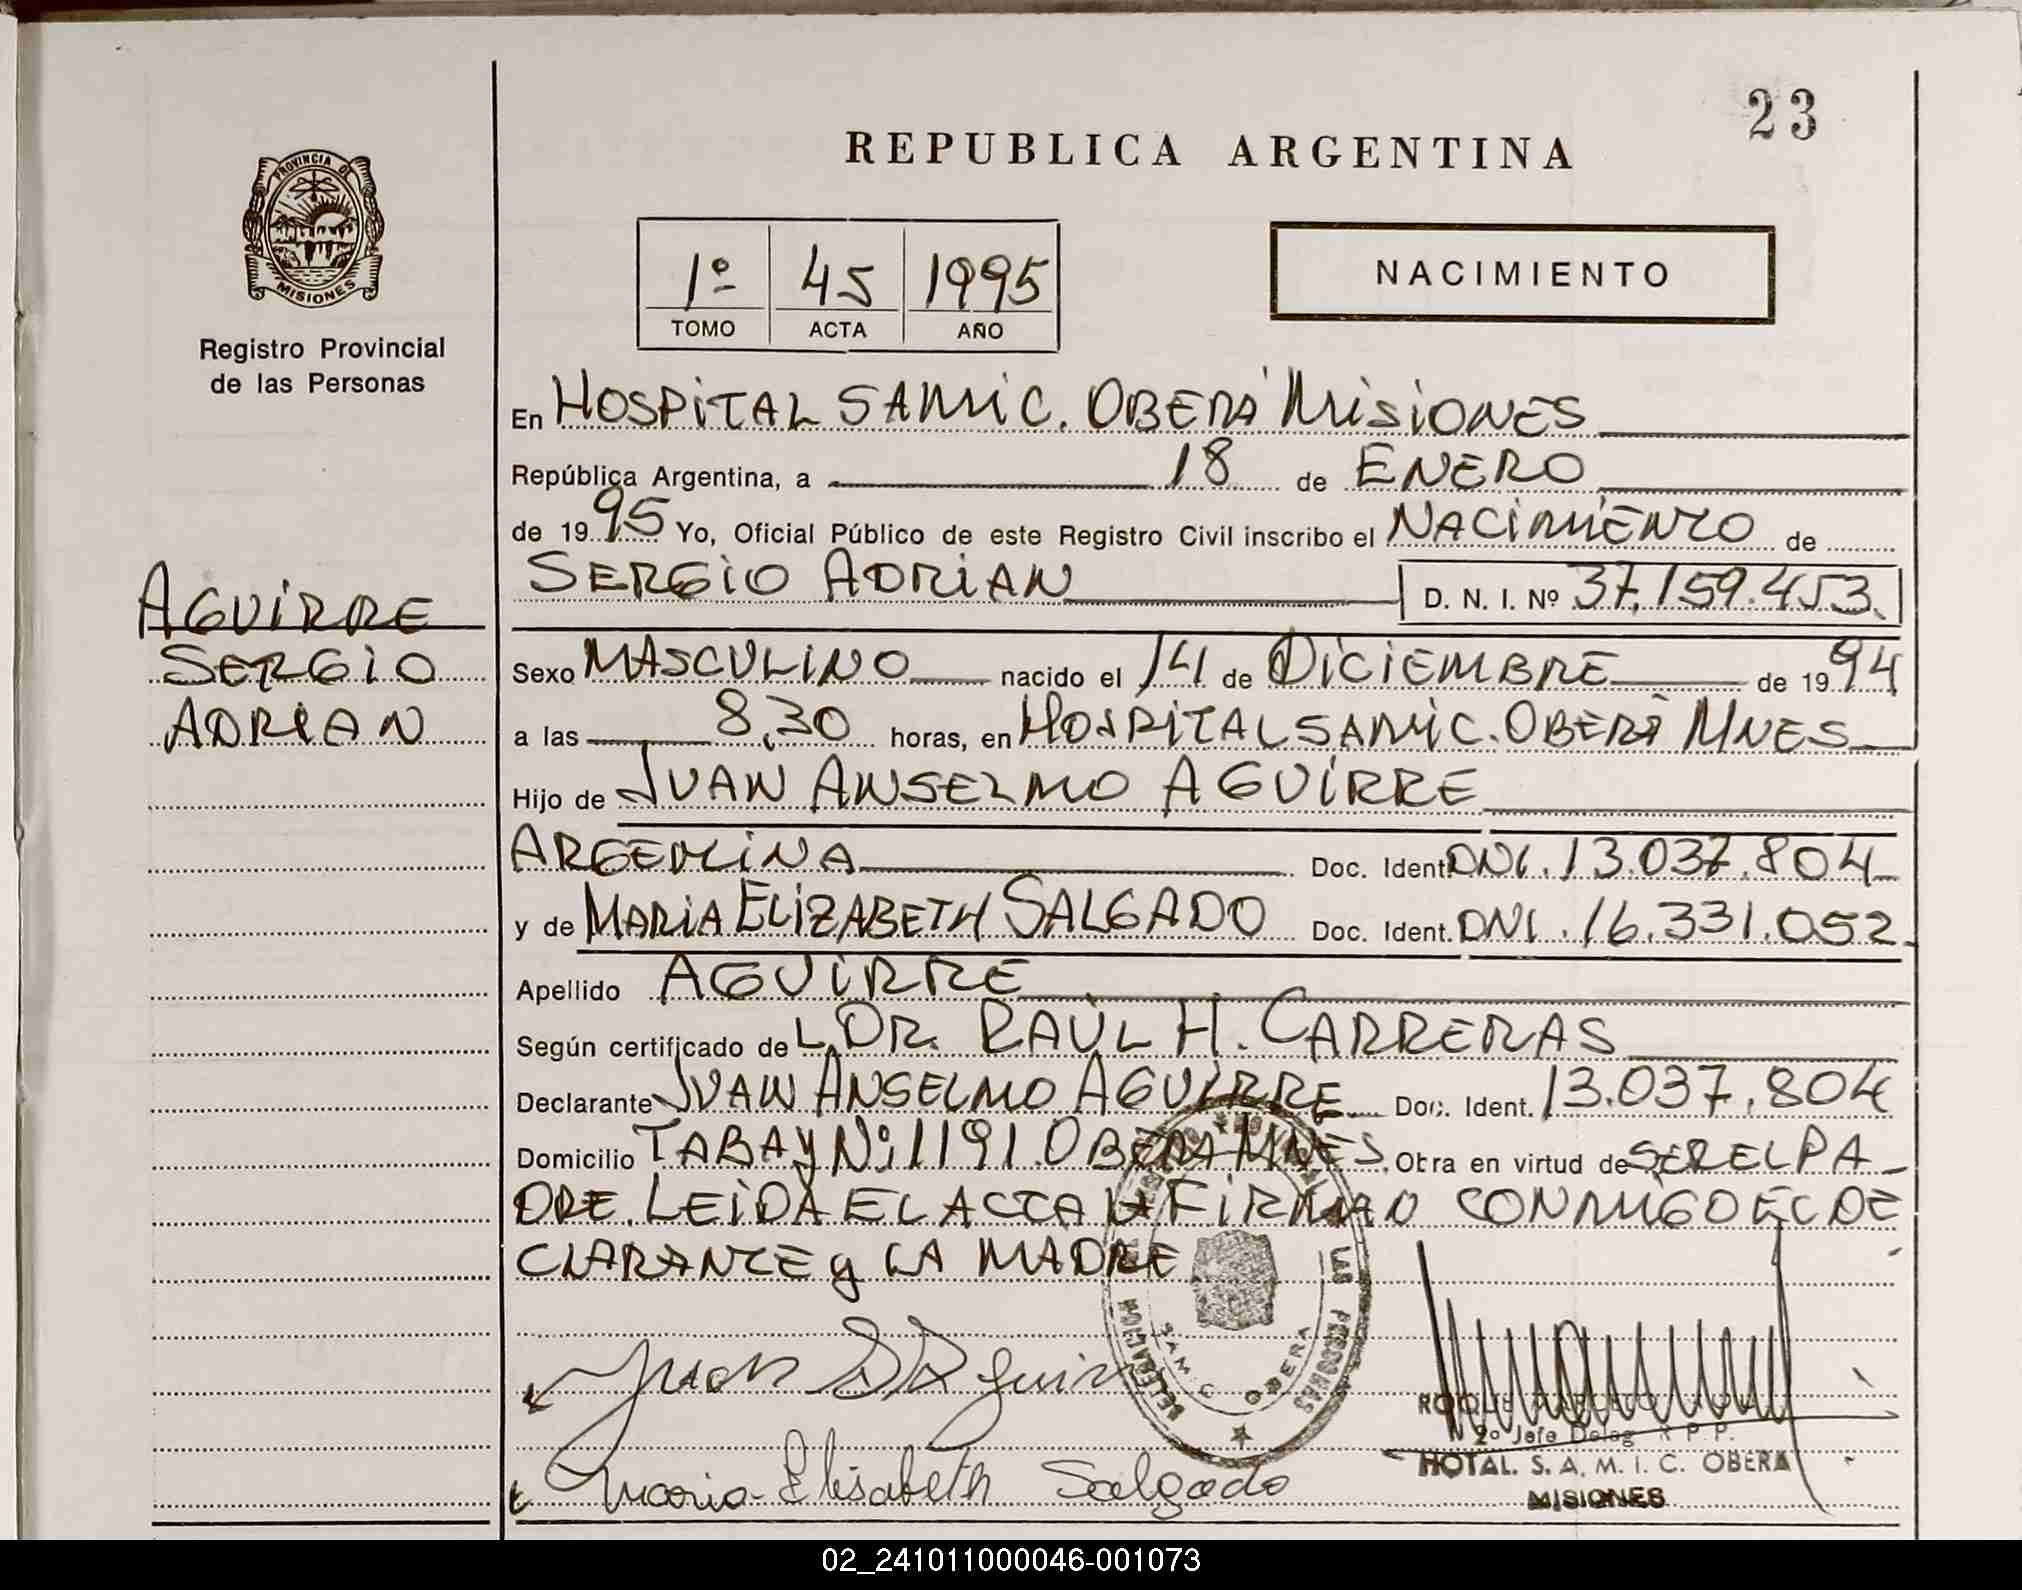 23
REPUBLICA ARGENTINA
PROVINCIA DE
MISIONES
Registro Provincial
de las Personas
1º 45 1995
TOMO ACTA AÑO
NACIMIENTO
En HOSPITAL SAMIC. OBERÁ MISIONES
República Argentina, a 18 de ENERO
de 1995 Yo, Oficial Público de este Registro Civil inscribo el NACIMIENTO de
SERGIO ADRIAN D. N. I. Nº 37.159.453.
AGUIRRE
SERGIO
ADRIAN
Sexo MASCULINO nacido el 14 de DICIEMBRE de 1994
a las 8,30 horas, en HOSPITAL SAMIC. OBERÁ MNES
Hijo de JUAN ANSELMO AGUIRRE
ARGENTINA Doc. Ident. DNI. 13.037.804
y de MARIA ELIZABETH SALGADO Doc. Ident. DNI. 16.331.052
Apellido AGUIRRE
Según certificado del DR. RAÚL H. CARRERAS
Declarante JUAN ANSELMO AGUIRRE Doc. Ident. 13.037.804
Domicilio TABAY Nº 1191 OBERA MNES. Obra en virtud de SER EL PA
DRE. LEIDA EL ACTA LA FIRMAN CONMIGO EL DE
CLARANTE y LA MADRE
LAS PERSONAS
DELEGACION
SAMIC OBERA
Juan A Aguirre
Maria Elisabeth Salgado
ROQUE
2º Jefe Deleg R. P. P.
HOTAL. S. A. M. I. C. OBERA
MISIONES
02_241011000046-001073